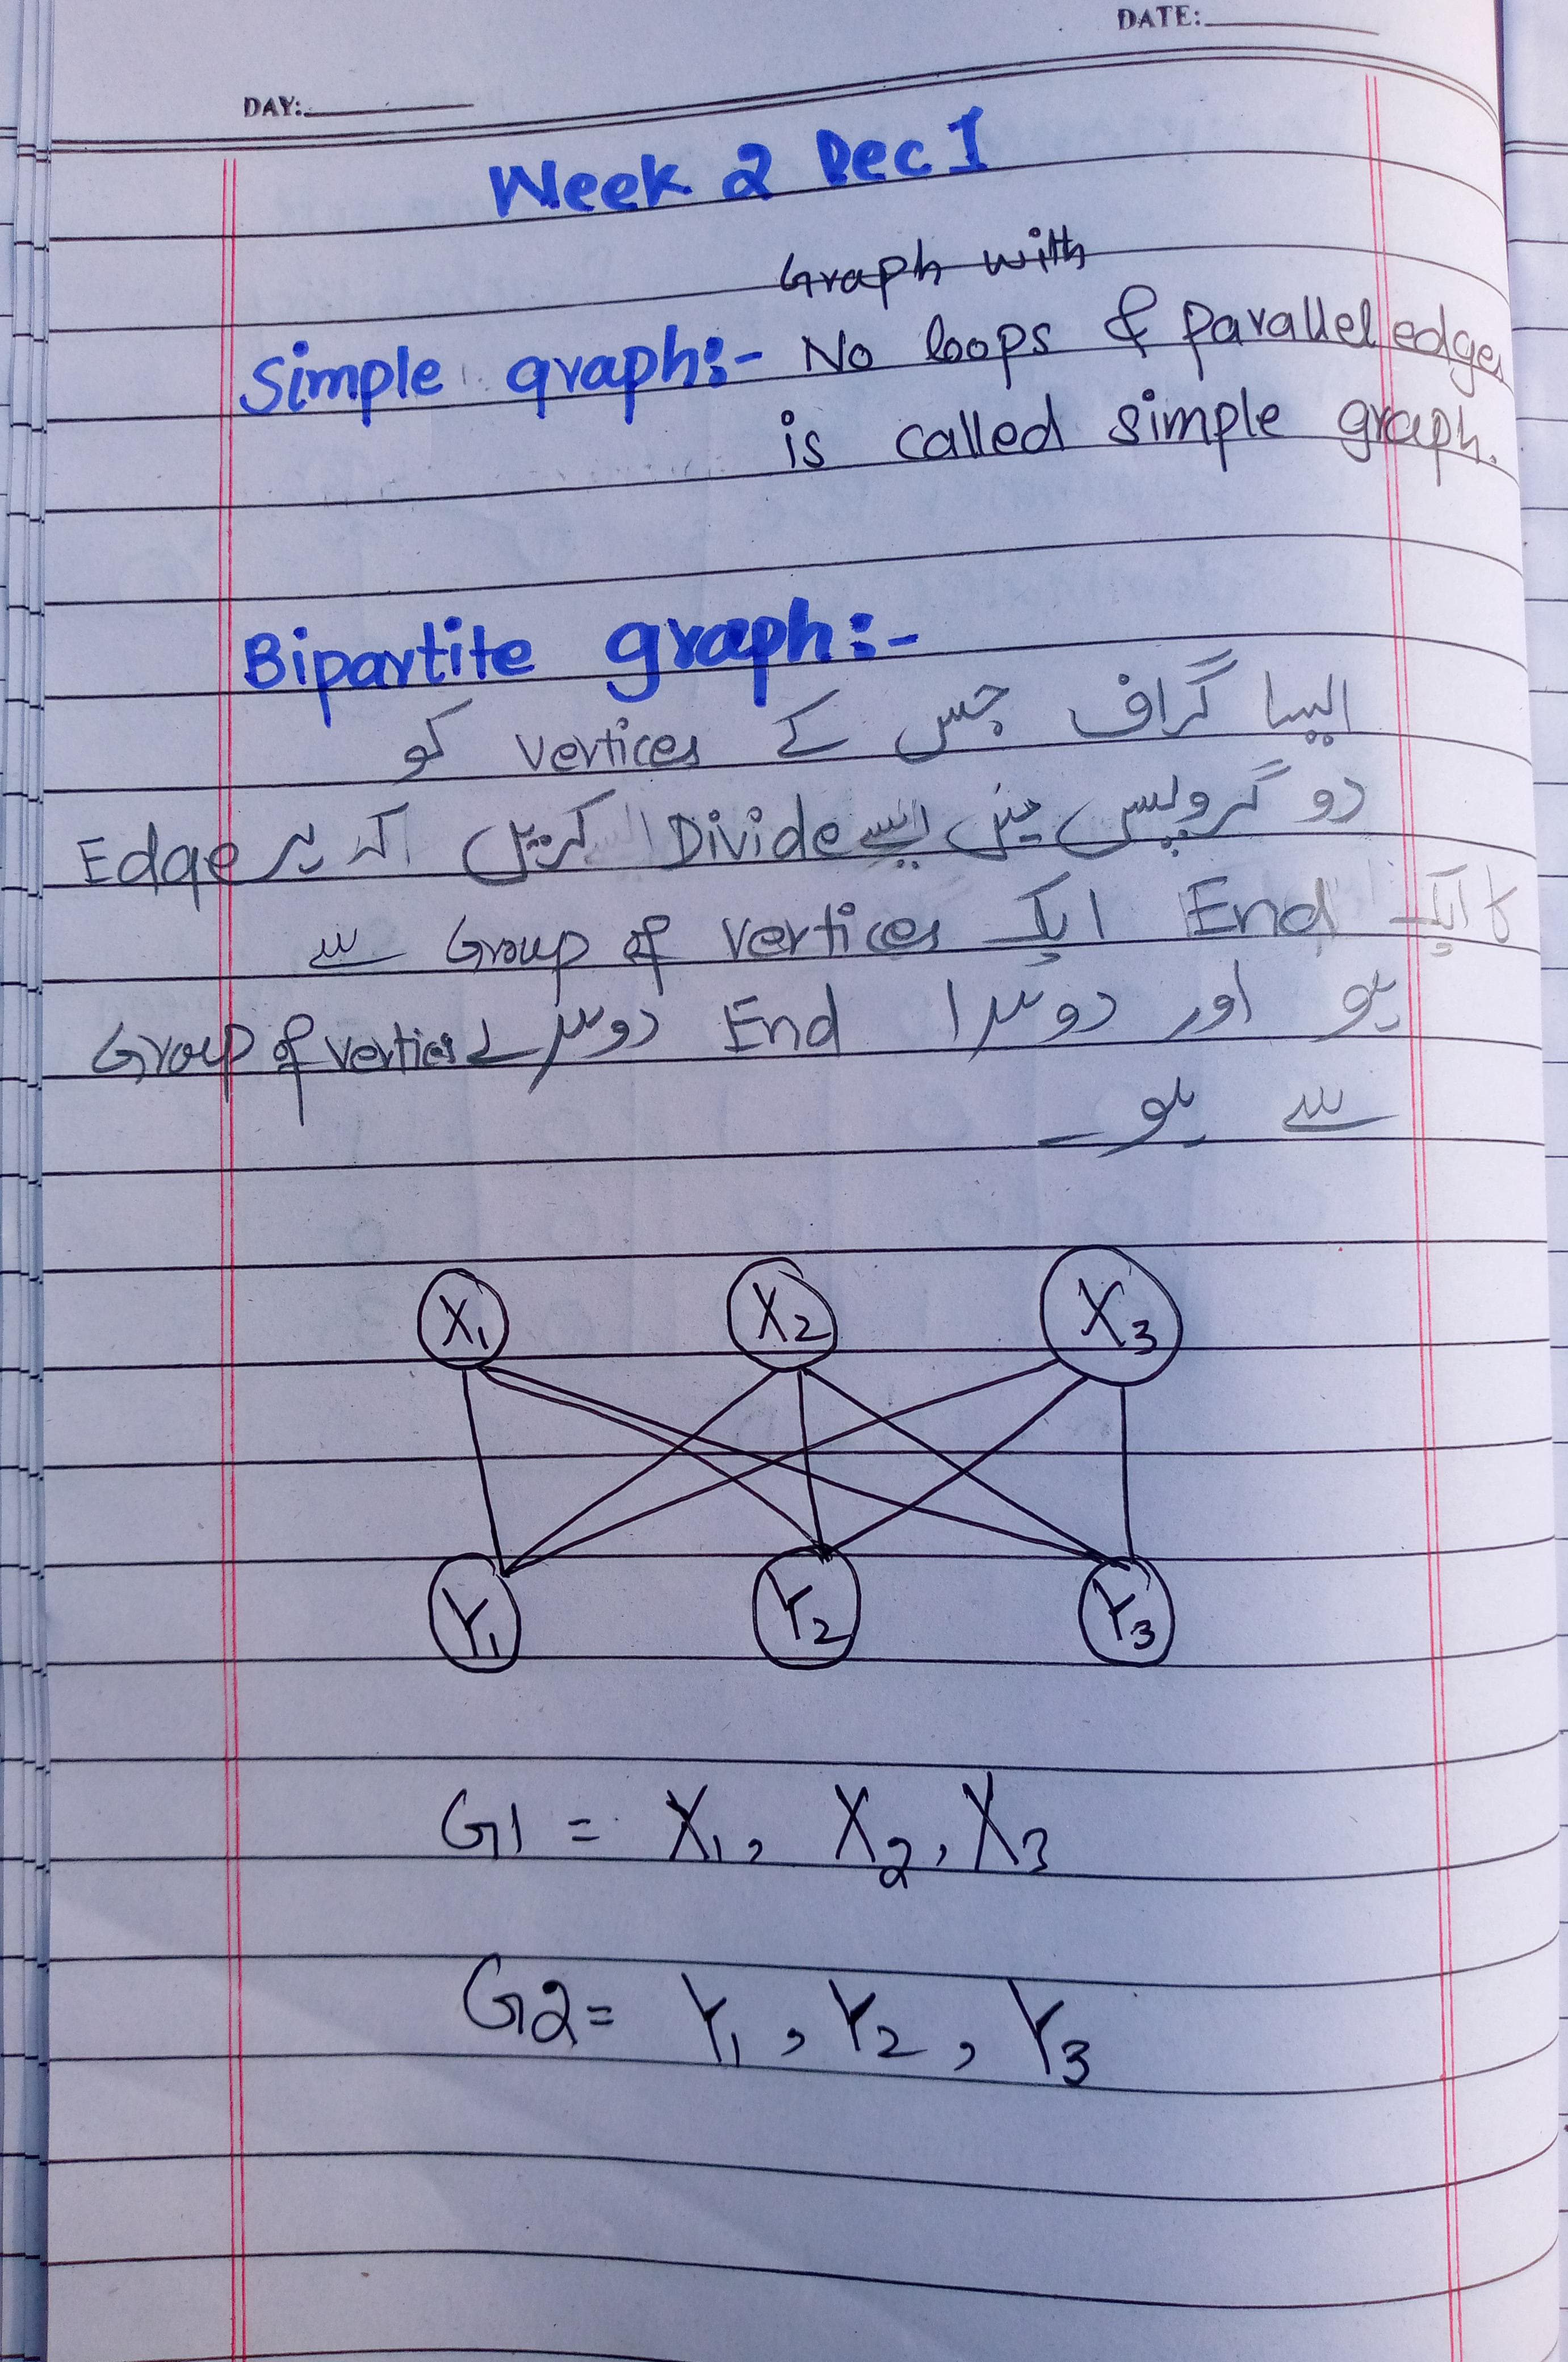 DATE:
DAY:
Week 2 Dec I
Graph with
Simple graph:- No loops & parallel edges
is called simple graph.
Bipartite graph:-
ایسا گراف جس کے vertices کو
دو گروپس میں ایسے Divide کریں کہ ہر Edge
کا ایک End ایک Group of vertices سے
ہو اور دوسرا End دوسرے Group of vertices
سے ہو۔
X1 X2 X3
Y1 Y2 Y3
G1 = X1, X2, X3
G2= Y1, Y2, Y3